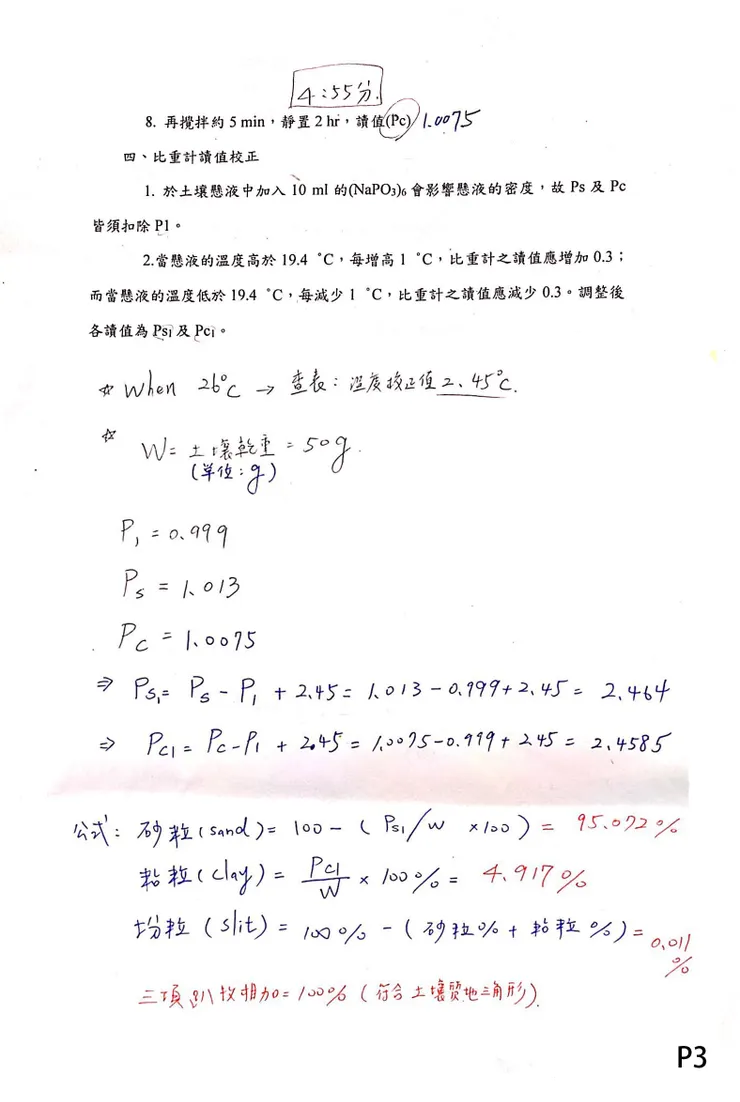 4:55分.
8. 再攪拌約 5 min，靜置 2 hr，讀值(Pc) 1.0075
四、比重計讀值校正
1. 於土壤懸液中加入 10 ml 的(NaPO₃)₆ 會影響懸液的密度，故 Ps 及 Pc
皆須扣除 P1。
2.當懸液的溫度高於 19.4 ˚C，每增高 1 ˚C，比重計之讀值應增加 0.3；
而當懸液的溫度低於 19.4 ˚C，每減少 1 ˚C，比重計之讀值應減少 0.3。調整後
各讀值為 Ps₁ 及 Pc₁。
☆ When 26°C → 查表：溫度校正值 2.45°C.
☆ W = 土壤乾重 = 50g.
(單位：g)
P₁ = 0.999
Ps = 1.013
Pc = 1.0075
⇒ Ps₁ = Ps - P₁ + 2.45 = 1.013 - 0.999 + 2.45 = 2.464
⇒ Pc1 = Pc - P1 + 2.45 = 1.0075 - 0.999 + 2.45 = 2.4585
公式：砂粒(sand) = 100 - (Ps1/W ×100) = 95.072%
粘粒(clay) = Pc1/W × 100% = 4.917%
坋粒(slit) = 100% - (砂粒% + 粘粒%) = 0.011%
三項 相加 = 100% (符合土壤質地三角形).
P3